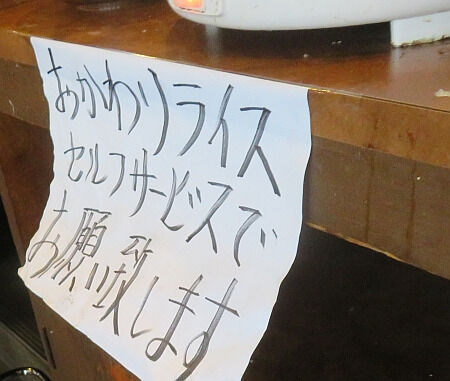 おかわりライス
セルフサービスで
お願い致します